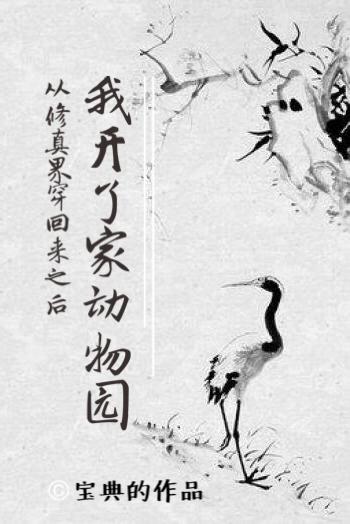 我开了家动物园
从修真界穿回来之后
© 宝典的作品